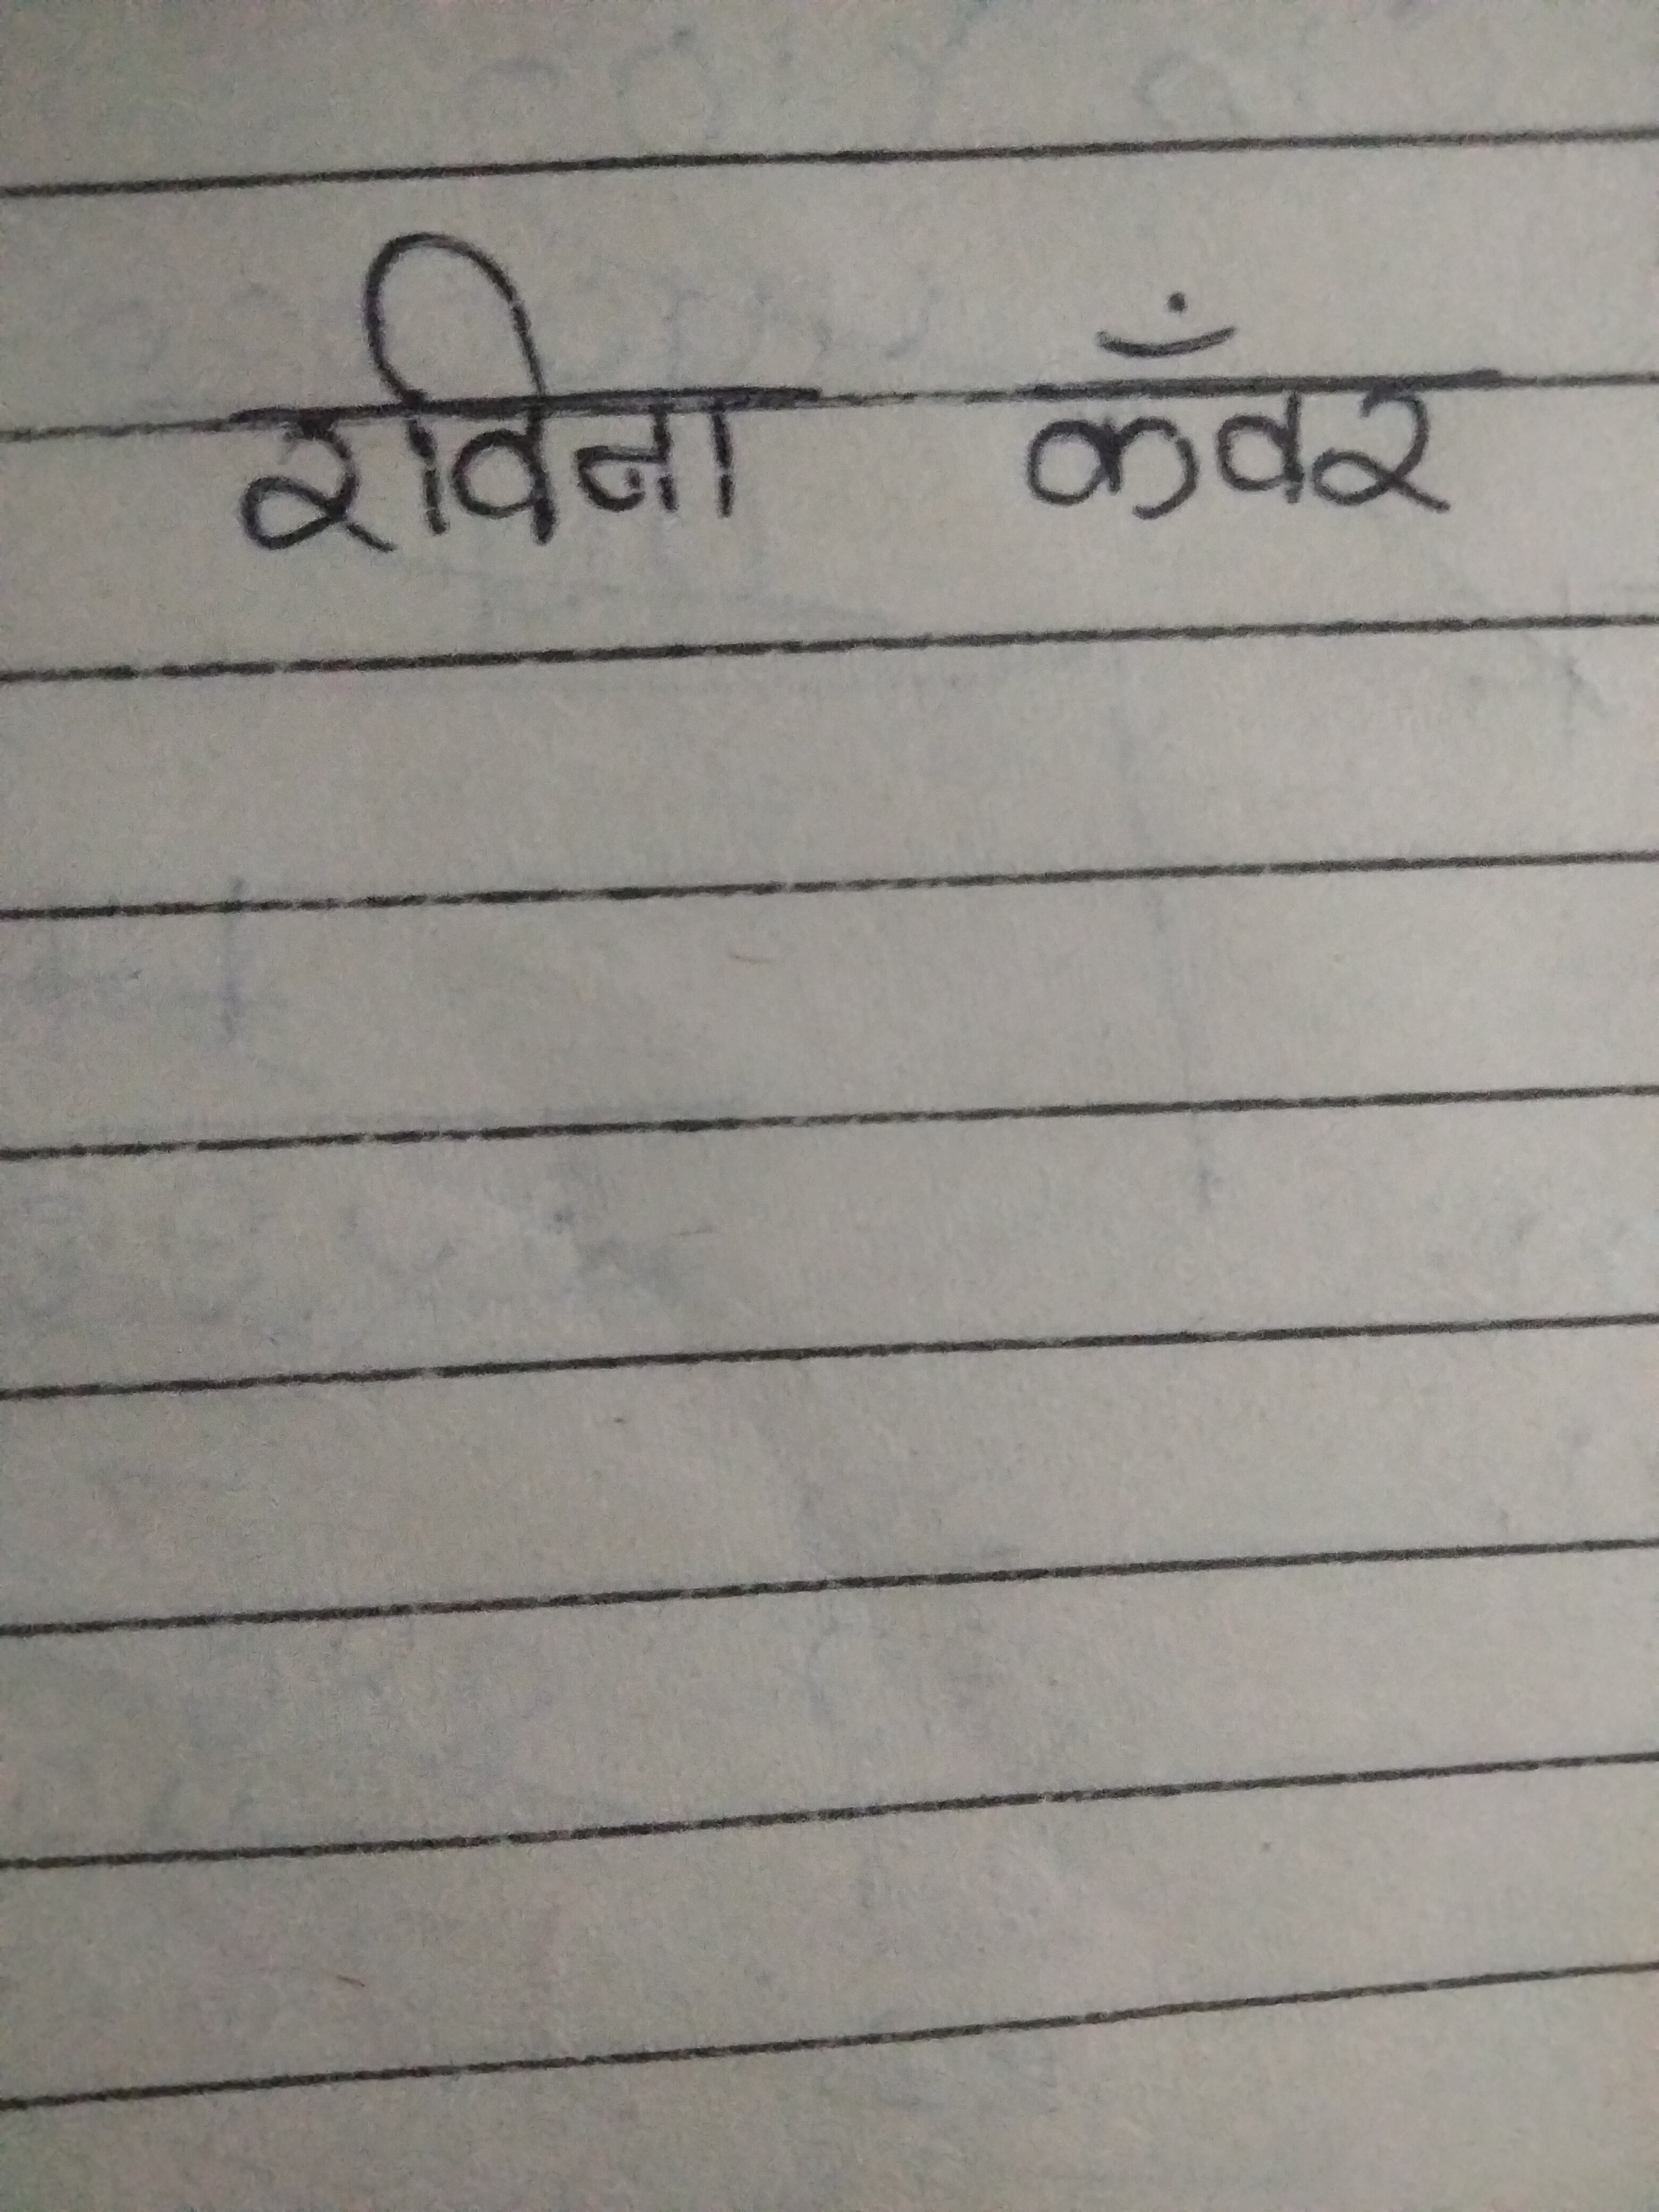 रविना कँवर